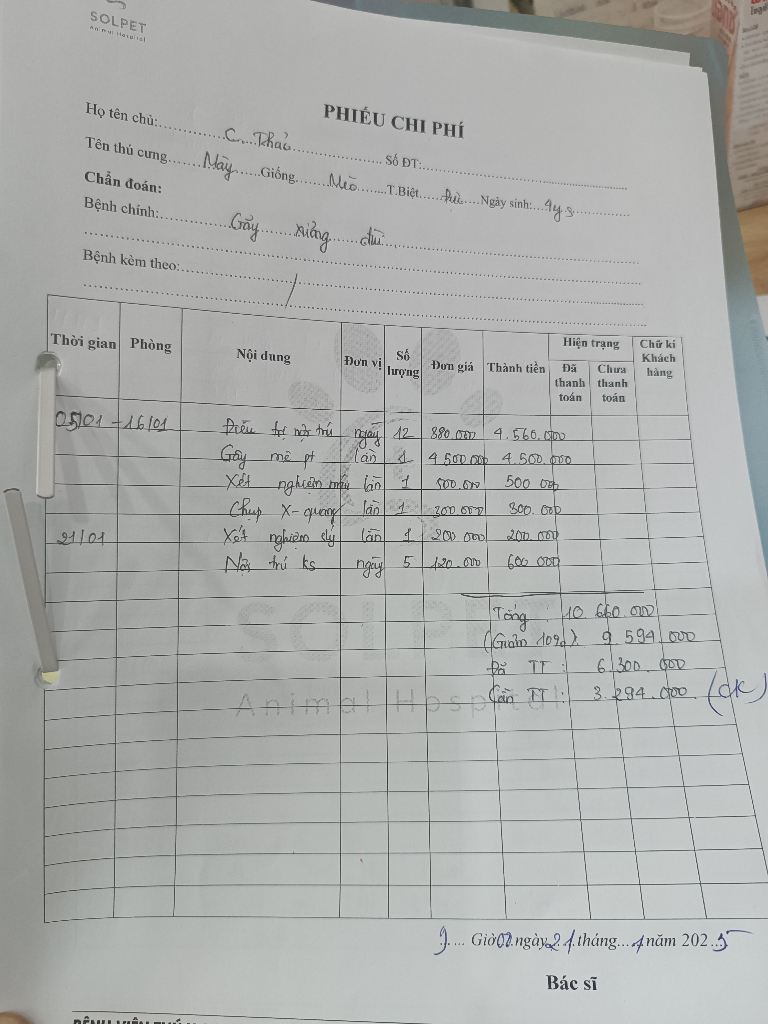 SOLPET
Animal Hospital
PHIẾU CHI PHÍ
Họ tên chủ: C. Thảo Số ĐT:
Tên thú cưng Mày Giống Mèo T.Biệt Đực Ngày sinh: 4ys
Chẩn đoán:
Bệnh chính: Gãy xương đùi
Bệnh kèm theo: /
Thời gian Phòng Nội dung Đơn vị Số lượng Đơn giá Thành tiền Hiện trạng Đã thanh toán Chưa thanh toán Chữ kí Khách hàng
05/01 - 16/01 Điều trị nội trú ngày 12 380.000 4.560.000
Gây mê pt lần 1 4 500 000 4.500.000
Xét nghiệm máu lần 1 500.000 500 000
Chụp X-quang lần 1 300.000 300.000
21/01 Xét nghiệm lần 1 200 000 200.000
Nội trú ks ngày 5 120.000 600 000
Tổng : 10 660 000
(Giảm 10%) 9 594 000
Đã TT : 6 300 000
Cần TT : 3.294.000 (CK)
SOLPET
Animal Hospital
9 Giờ 02 ngày 21 tháng 1 năm 2025
Bác sĩ